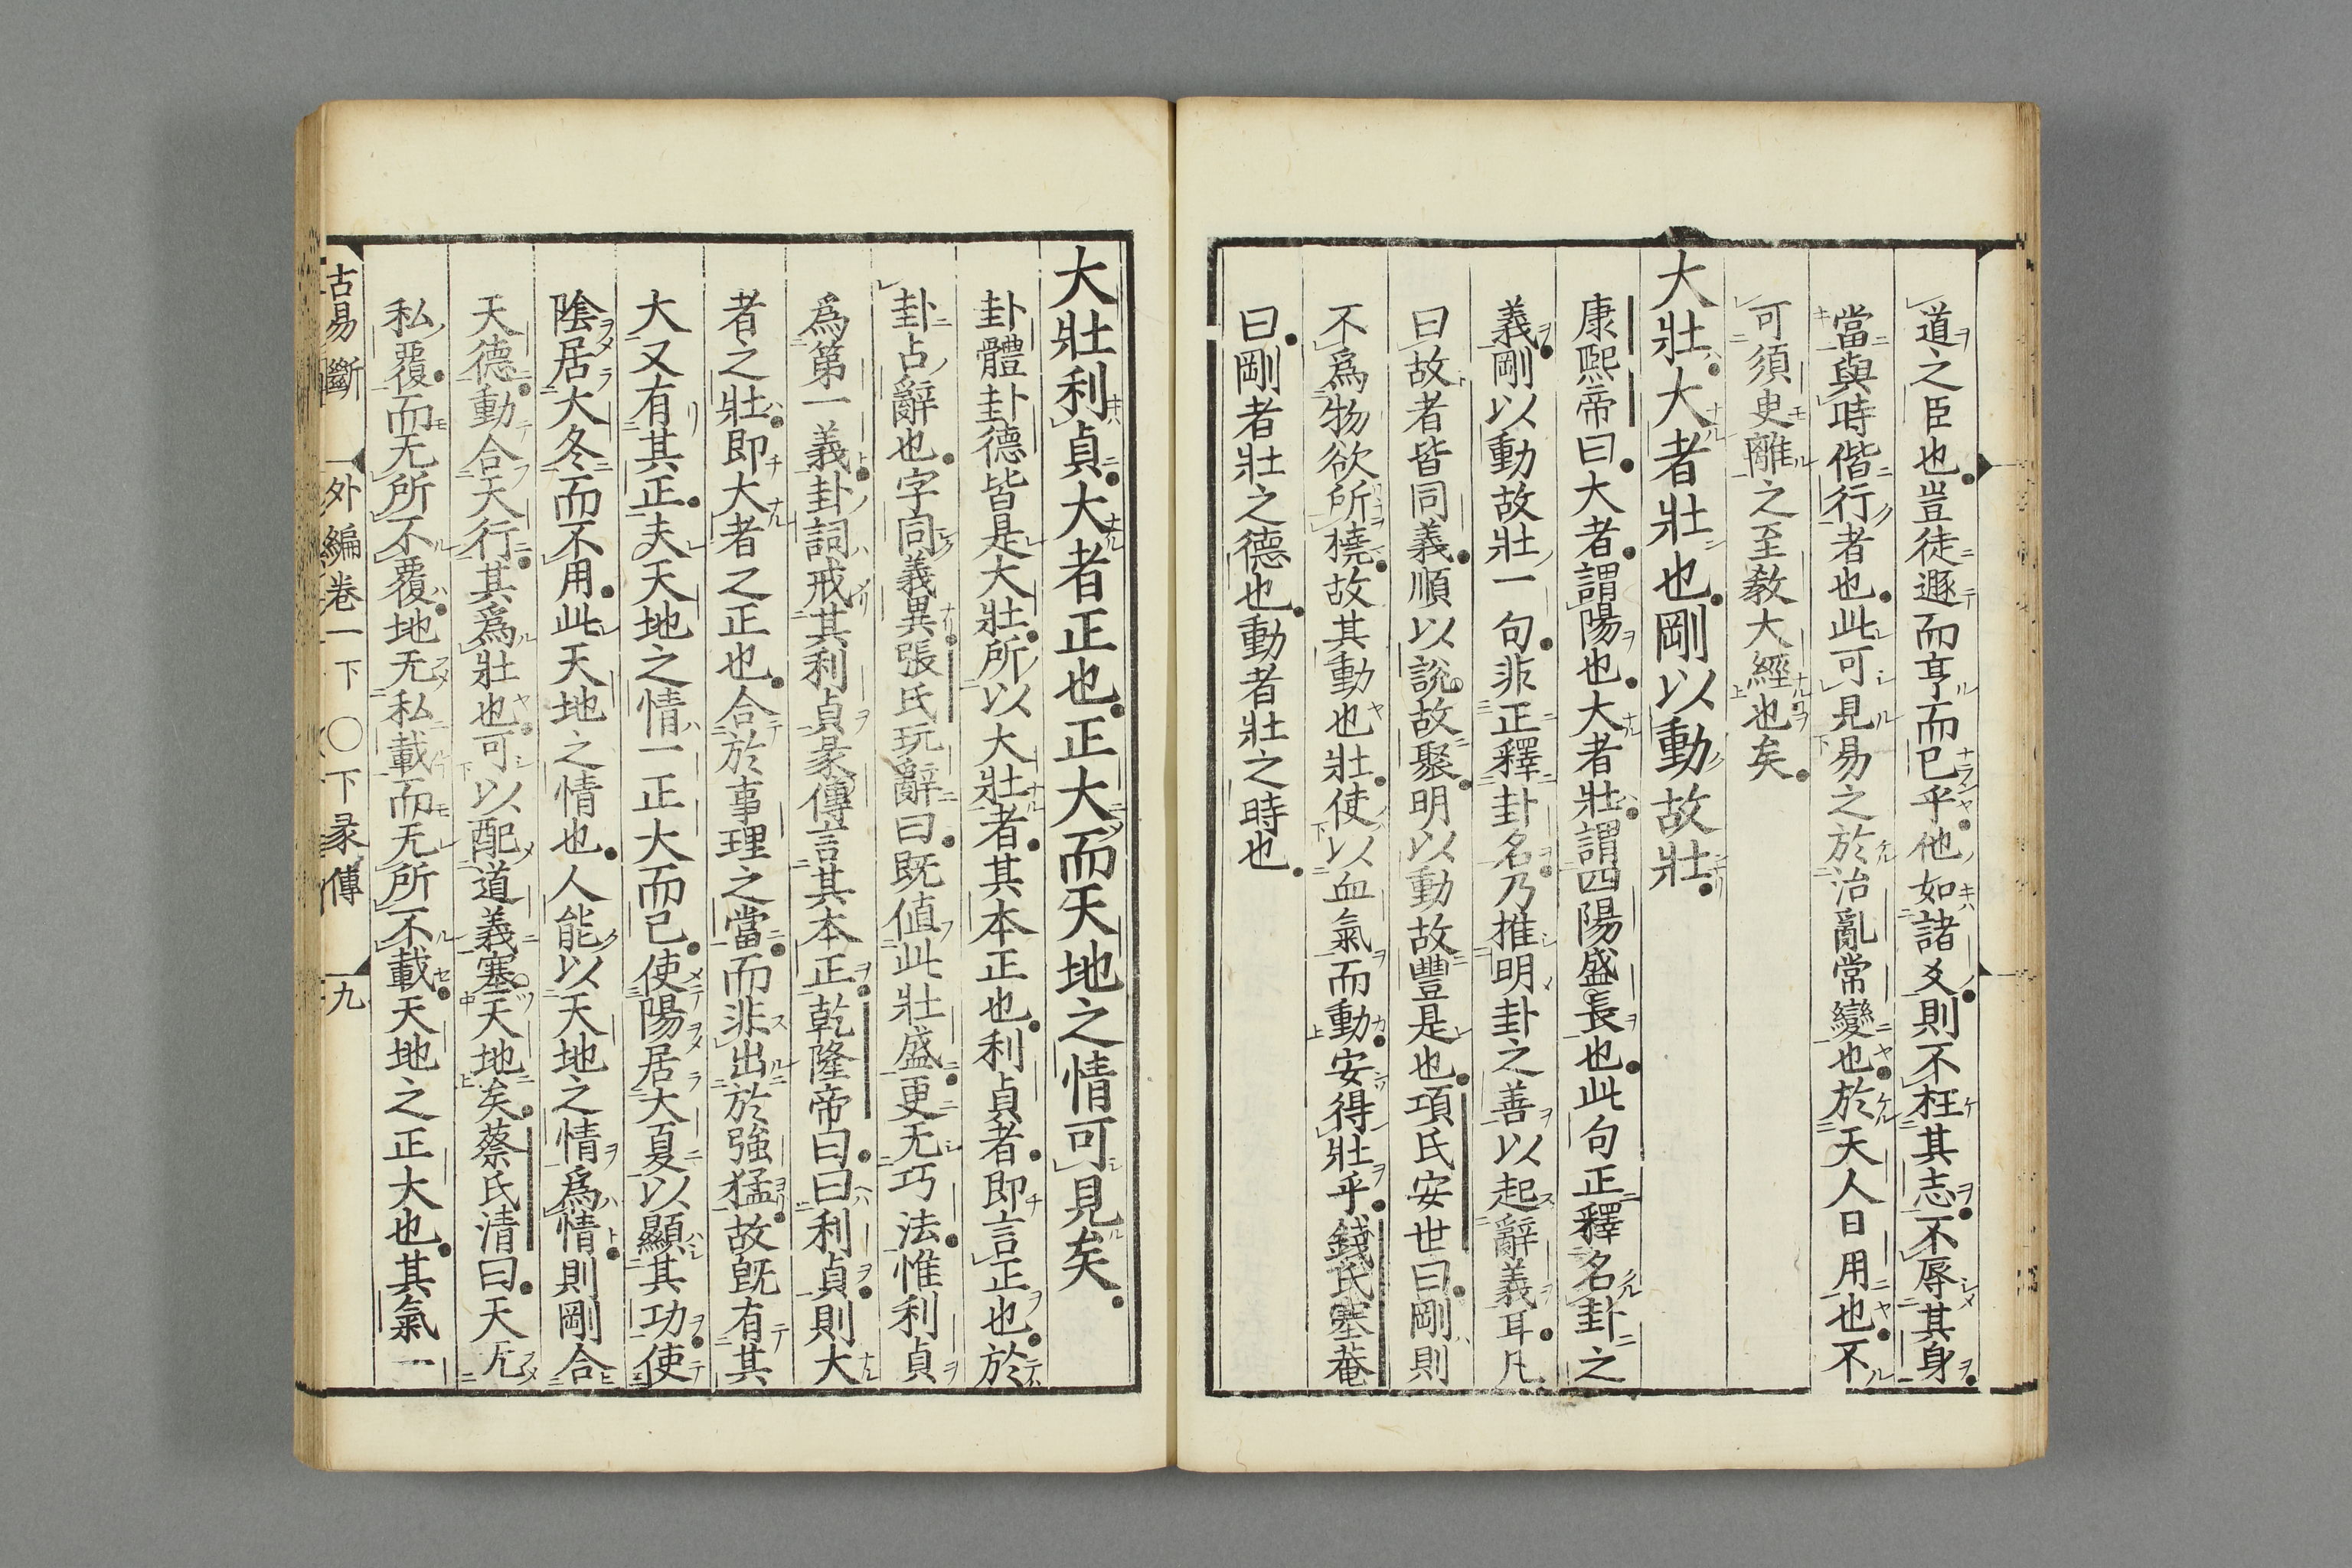 道之臣也豈徒遯而亨而已乎他如諸爻則不枉其志不辱其身
當與時偕行者也此可見易之於治亂常變也於天人日用也不
可須臾離之至教大經也矣
大壯大者壯也剛以動故壯
康熙帝曰大者謂陽也大者壯謂四陽盛長也此句正釋名卦之
義剛以動故壯一句非正釋卦名乃推明卦之善以起辭義耳凡
曰故者皆同義順以說故聚明以動故豐是也項氏安世曰剛則
不爲物欲所撓故其動也壯使以血氣而動安得壯乎錢氏塞菴
曰剛者壯之德也動者壯之時也
大壯利貞大者正也正大而天地之情可見矣
卦體卦德皆是大壯所以大壯者其本正也利貞者即言正也於
卦占辭也字同義異張氏玩辭曰既値此壯盛更无巧法惟利貞
爲第一義卦詞戒其利貞彖傳言其本正乾隆帝曰曰利貞則大
者之壯即大者之正也合於事理之當而非出於強猛故既有其
大又有其正夫天地之情一正大而已使陽居大夏以顯其功使
陰居大冬而不用此天地之情也人能以天地之情爲情則剛合
天德動合天行其爲壯也可以配道義塞天地矣蔡氏清曰天无
私覆而无所不覆地无私載而无所不載天地之正大也其氣一
古易斷 外編卷一下 〇下彖傳 九